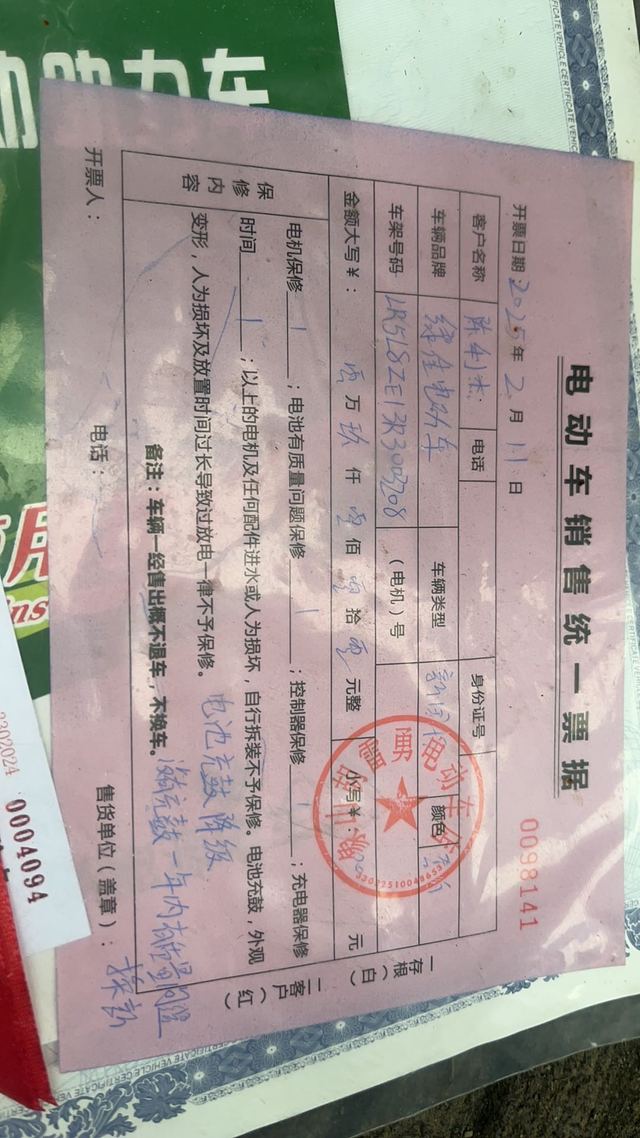 电动车销售统一票据
0098141
开票日期 2025 年 2 月 11 日
客户名称 陈利杰 电话 身份证号
车辆品牌 绿佳电动车 车辆类型 新国标 颜色
车架号码 (电机)号
金额大写¥: 零 万 玖 仟 零 佰 零 拾 零 元整 小写¥: 元
保修内容
电机保修 1 ;电池有质量问题保修 1 ;控制器保修 1 ;充电器保修
时间 1 ;以上的电机及任何配件进水或人为损坏,自行拆装不予保修。电池充鼓,外观
变形,人为损坏及放置时间过长导致过放电一律不予保修。
电池充鼓 降级
备注:车辆一经售出概不退车,不换车。
充鼓一年内
开票人: 电话: 售货单位(盖章):
一存根(白)
二客户(红)
动助力车
3302024
0004094
CERTIFICATE VEHICLE CERTIFICATE